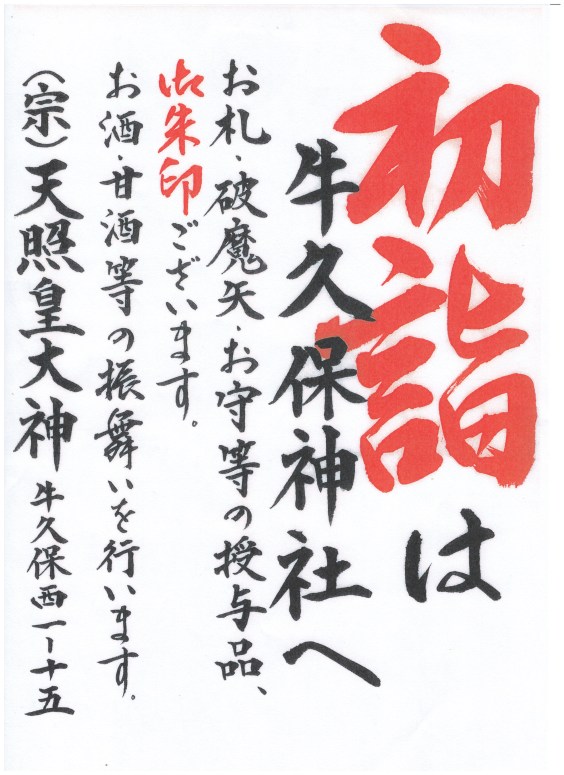 初詣は
牛久保神社へ
お札・破魔矢・お守等の授与品、
御朱印ございます。
お酒・甘酒等の振舞いを行います。
(宗)天照皇大神 牛久保西一ー十五